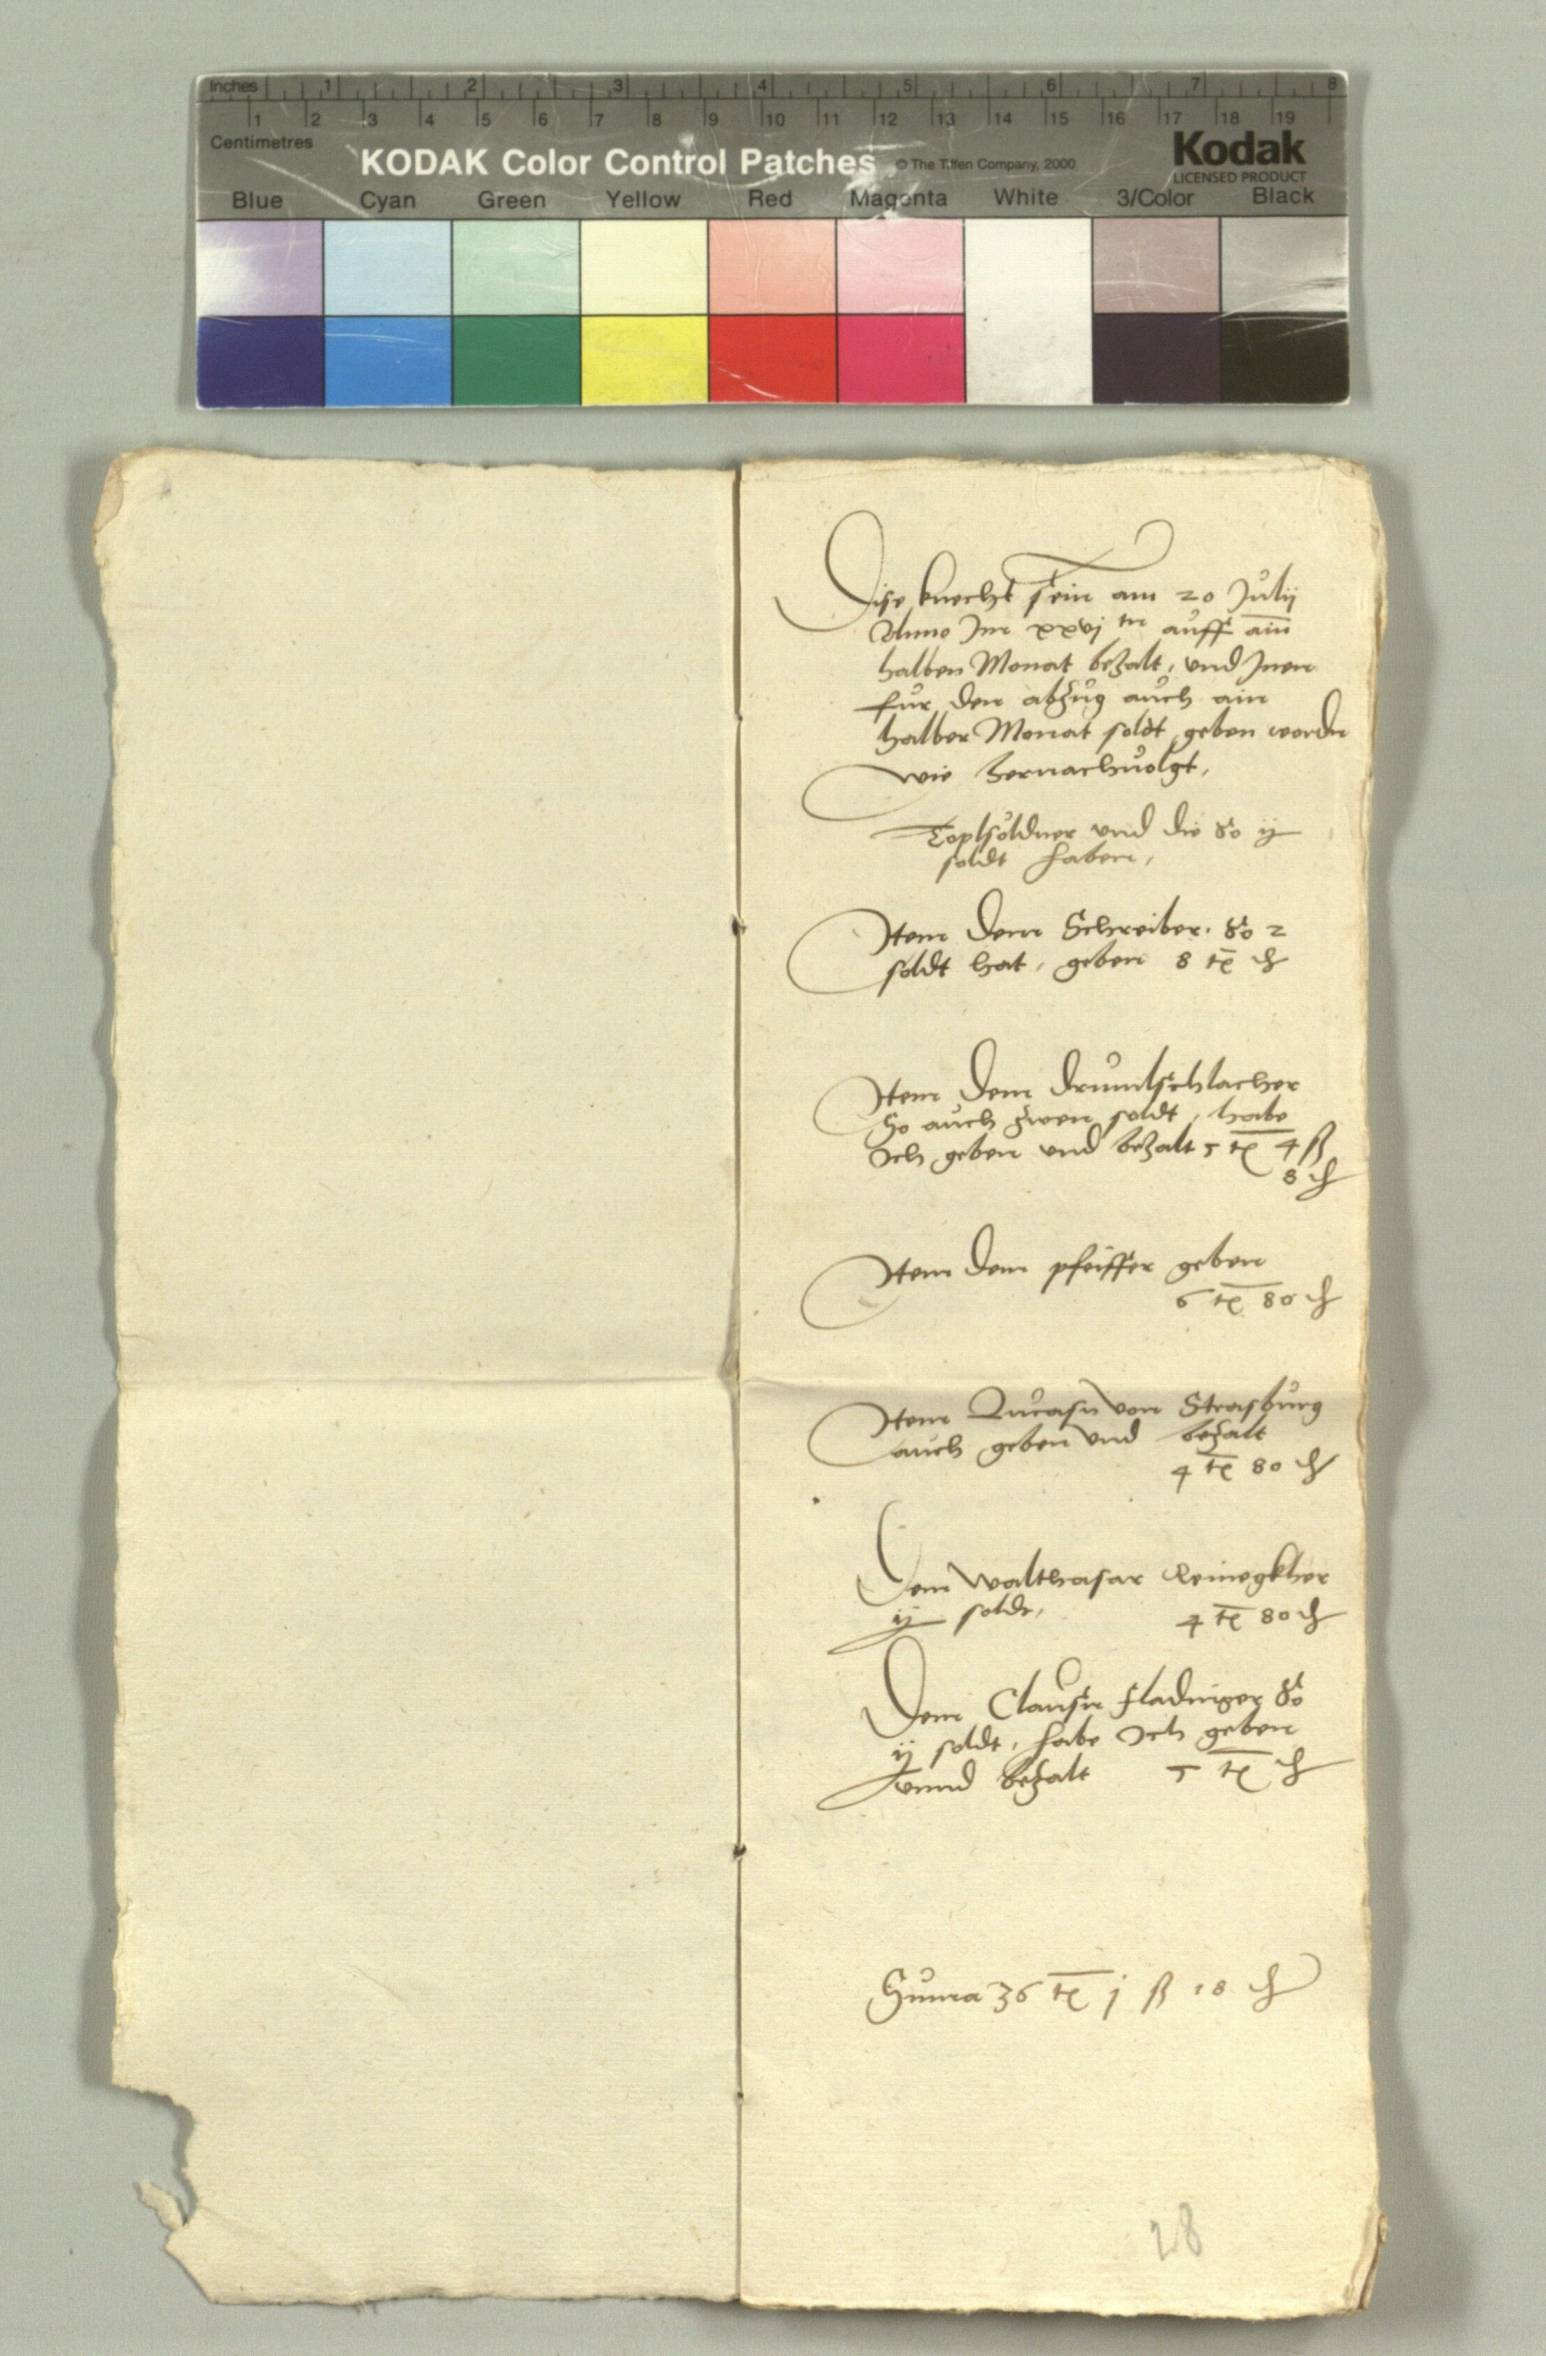 Inches 1 2 3 4 5 6 7 8
1 2 3 4 5 6 7 8 9 10 11 12 13 14 15 16 17 18 19
Centimetres
KODAK Color Control Patches © The Tiffen Company, 2000 Kodak
LICENSED PRODUCT
Blue Cyan Green Yellow Red Magenta White 3/Color Black
Dise knecht sein am 20 Julij
Anno Im xxvj tn auff ain
halben Monat bezalt, und Inen
fur den abzug auch ain
halber Monat soldt geben wordn
wie hernachvolgt,
Toplsoldner und die so ij
soldt haben,
Item dem Schreiber. so 2
soldt hat, geben 8 ℔ ₰
Item dem drumlschlacher
So auch zwen soldt, habe
Ich geben und bezalt 5 ℔ 4 ß
8 ₰
Item dem pfeiffer geben
6 ℔ 80 ₰
Item von Strasburg
auch geben und bezalt
4 ℔ 80 ₰
Dem Walthasar Reinegkher
ij soldt, 4 ℔ 80 ₰
Dem Clausn fladinger so
ij soldt, habe Ich geben
unnd bezalt 5 ℔ ₰
Suma 36 ℔ j ß 18 ₰
28